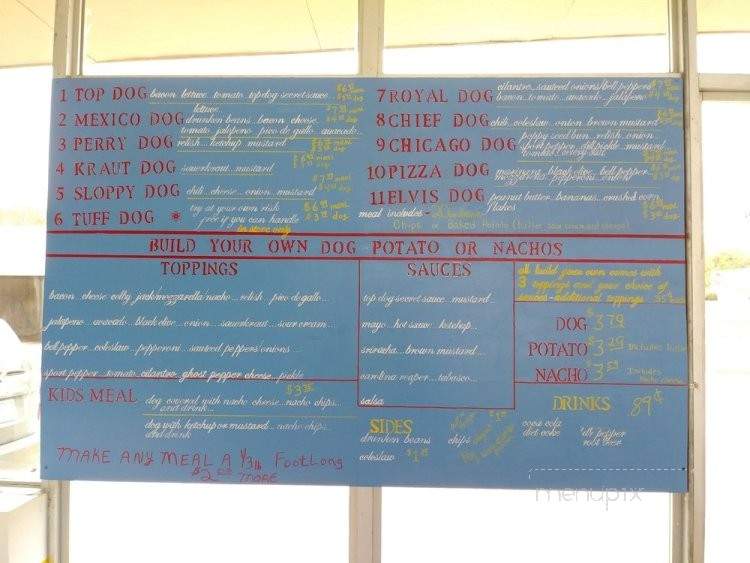 1 TOP DOG bacon lettuce tomato topdog secret sauce
2 MEXICO DOG drunken beans bacon cheese
lettuce
tomato jalapeno pico de gallo avocado
3 PERRY DOG relish ketchup mustard
4 KRAUT DOG sauerkraut mustard
5 SLOPPY DOG chili cheese onion mustard
6 TUFF DOG * try at your own risk
free if you can handle
in store only
7 ROYAL DOG cilantro sauteed onions/bell peppers
bacon tomato avocado jalapeno
8 CHIEF DOG chili coleslaw onion brown mustard
9 CHICAGO DOG poppy seed bun relish onion
sport pepper dill pickle mustard
tomato celery salt
10 PIZZA DOG marinara black olive bell pepper
mozzarella pepperoni onion
11 ELVIS DOG peanut butter bananas crushed corn
flakes
meal includes -
Chips or Baked Potato
BUILD YOUR OWN DOG POTATO OR NACHOS
TOPPINGS
bacon...cheese colby jack/mozzarella/nacho...relish pico de gallo...
jalapeno avocado black olive...onion...sauerkraut...sour cream...
bell pepper...coleslaw...pepperoni...sauteed peppers/onions...
sport pepper...tomato cilantro ghost pepper cheese...pickle
SAUCES
top dog secret sauce mustard...
mayo hot sauce ketchup...
sriracha...brown mustard...
carolina reaper...tabasco...
salsa
all build your own comes with
3 toppings and your choice of
sauces-additional toppings
DOG
POTATO Includes
NACHO Includes
nacho cheese
KIDS MEAL dog covered with nacho cheese...nacho chips...
and drink...
dog with ketchup or mustard...nacho chips...
and drink
MAKE ANY MEAL A 1/3lb FootLong
$2.00 MORE
SIDES
drunken beans chips
coleslaw
DRINKS 89¢
coca cola dr pepper
diet coke root beer
menupix